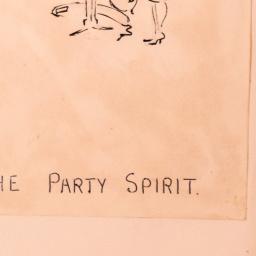 HE PARTY SPIRIT.